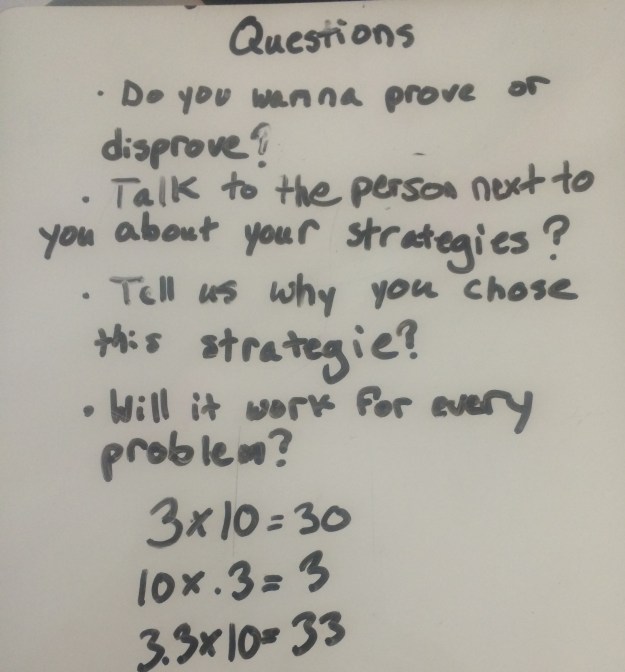 Questions
· Do you wanna prove or
disprove?
· Talk to the person next to
you about your strategies?
· Tell us why you chose
this strategie?
· Will it work for every
problem?
3x10=30
10x.3=3
3.3x10=33